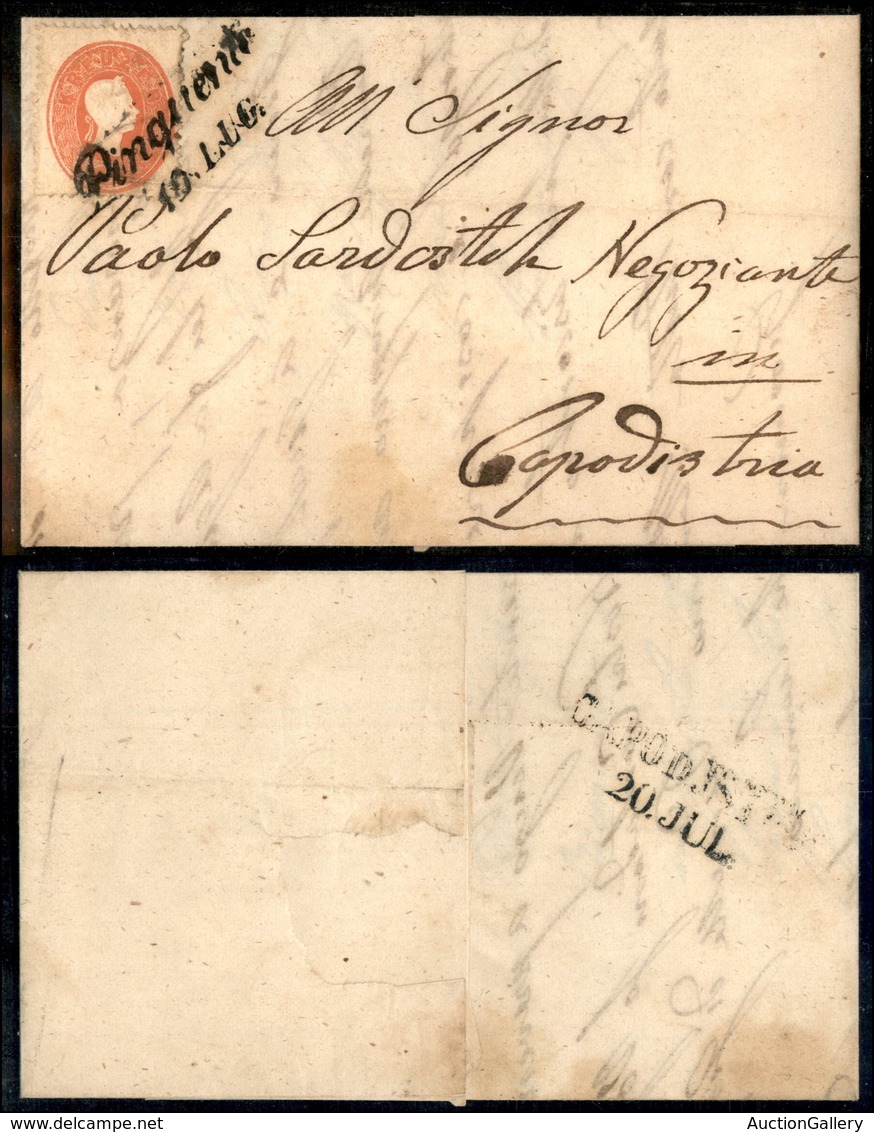 Pinguente
19. LUG.
All Signor
Paolo Sardostch Negoziante
in
Capodistria
CAPODISTRIA
20. JUL.
AuctionGallery
www.delcampe.net